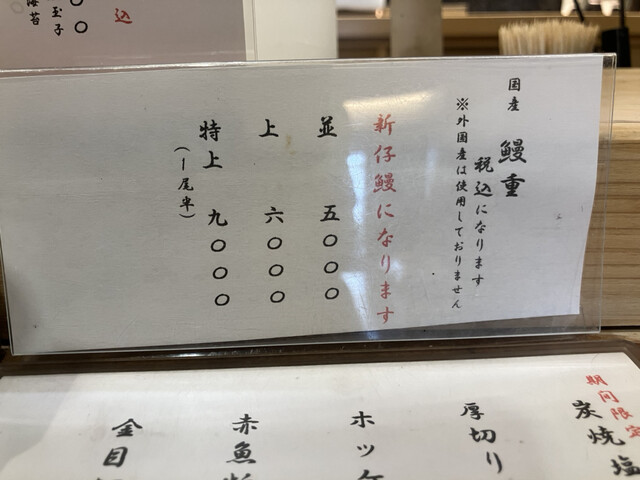 国産 鰻重
税込になります
※外国産は使用しておりません
新仔鰻になります
並 五〇〇〇
上 六〇〇〇
特上 九〇〇〇
(一尾半)
込
〇〇
玉子
海苔
期間限定
炭焼塩
厚切り
ホッケ
赤魚
金目